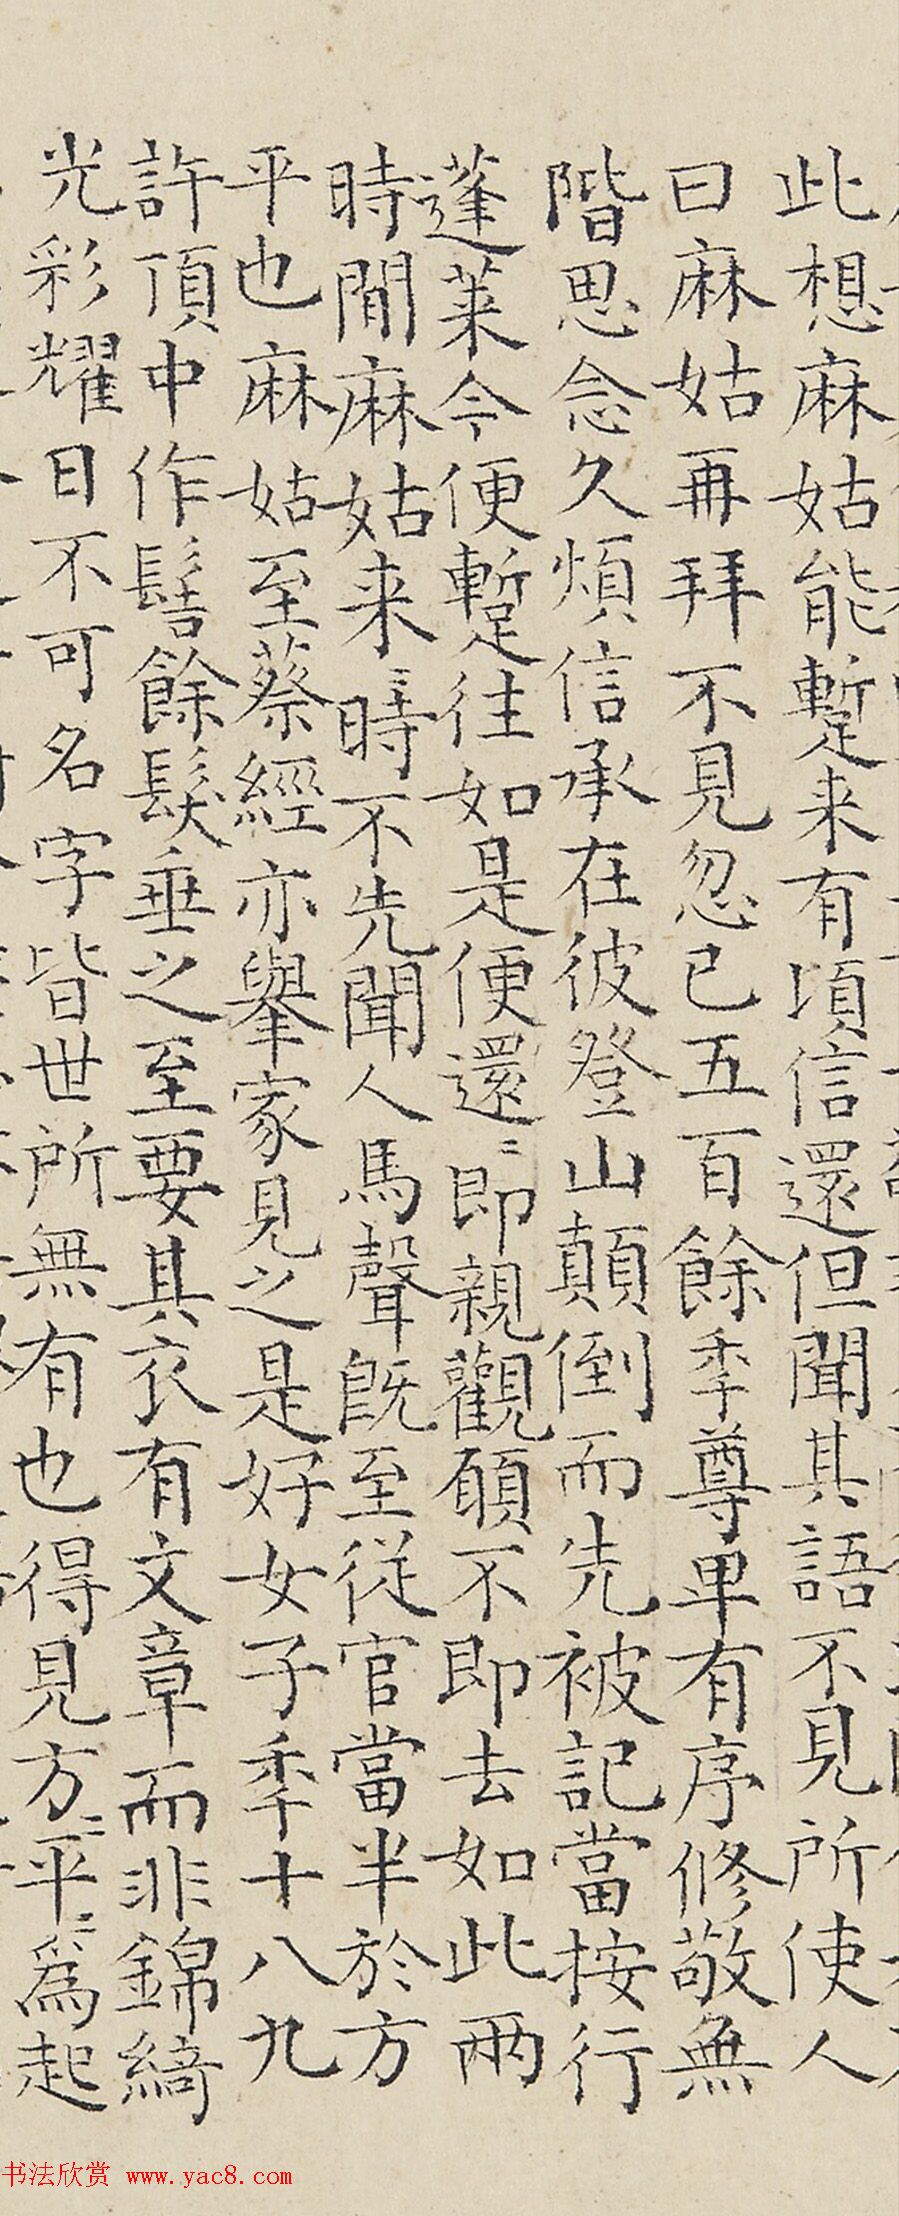 此想麻姑能蹔来有頃信還但聞其語不見所使人
曰麻姑再拜不見忽已五百餘季尊卑有序修敬無
階思念久煩信承在彼登山顛倒而先被記當按行
蓬莱今便蹔往如是便還〻即親觀願不即去如此兩
時間麻姑来〻時不先聞人馬聲既至從官當半於方
平也麻姑至蔡經亦舉家見之是好女子季十八九
許頂中作髻餘髮垂之至要其衣有文章而非錦綺
光彩耀日不可名字皆世所無有也得見方〻平〻為起
书法欣赏 www.yac8.com